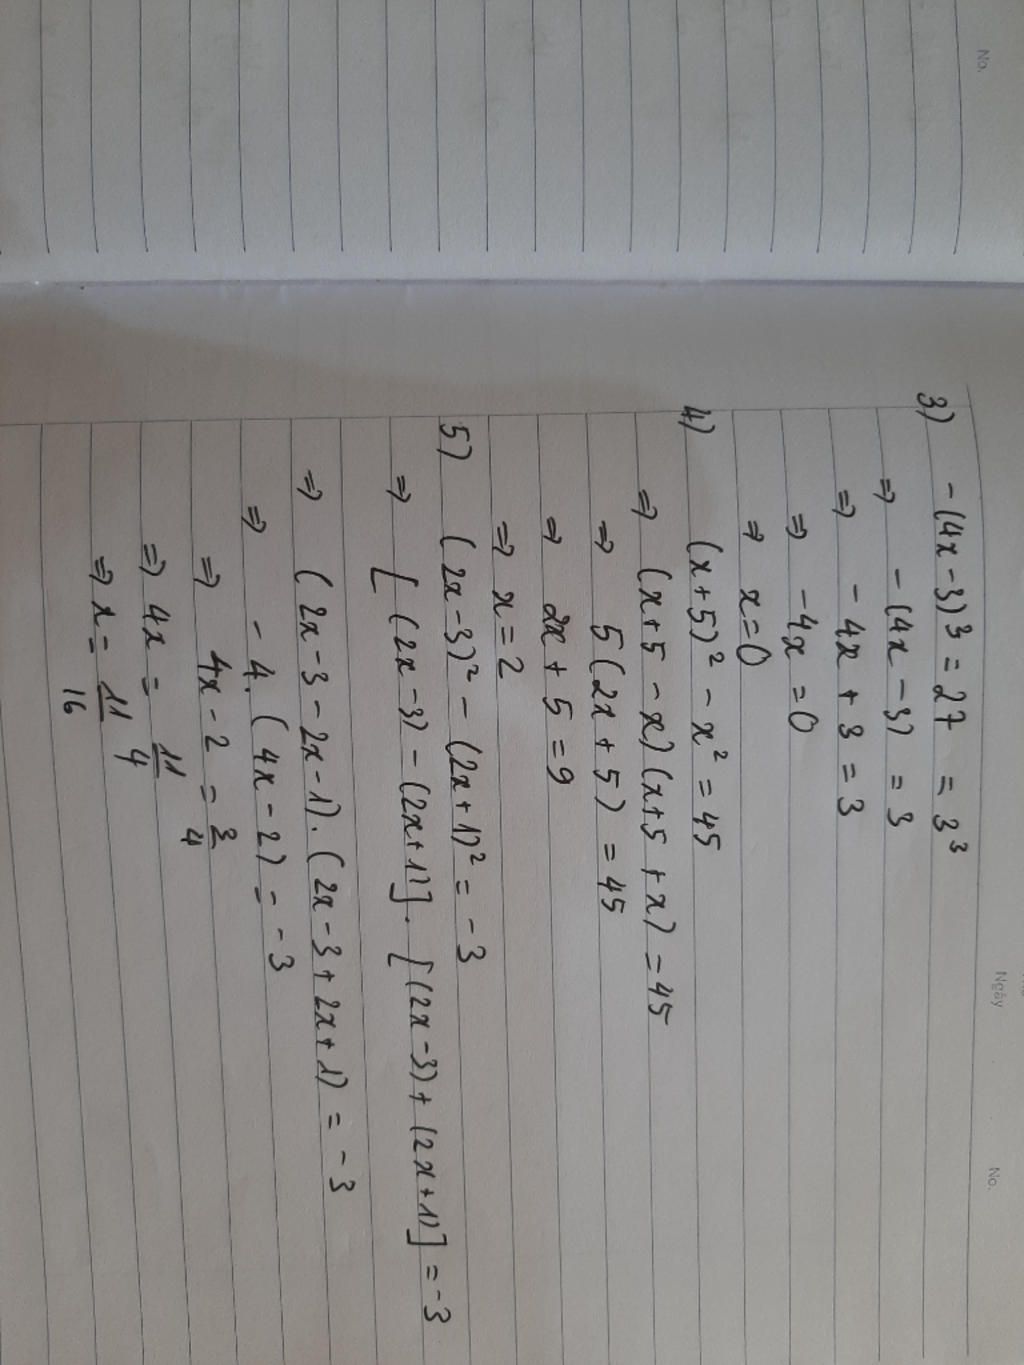 No.
Ngày
No.
3) -(4x-3)³ = 27 = 3³
⇒ -(4x-3) = 3
⇒ -4x + 3 = 3
⇒ -4x = 0
⇒ x = 0
4) (x+5)² - x² = 45
⇒ (x+5-x)(x+5+x) = 45
⇒ 5(2x+5) = 45
⇒ 2x + 5 = 9
⇒ x = 2
5) (2x-3)² - (2x+1)² = -3
⇒ [(2x-3)-(2x+1)].[(2x-3)+(2x+1)] = -3
⇒ (2x-3-2x-1).(2x-3+2x+1) = -3
⇒ -4.(4x-2) = -3
⇒ 4x-2 = 3/4
⇒ 4x = 11/4
⇒ x = 11/16